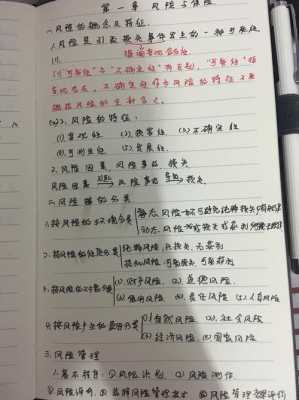 第一章 风险与保险
一、风险的概念及特征
1.风险是引致损失事件发生的一种可能性
(1)
强调客观存在性
(1)"可能性"与"不确定性"有区别,"可能性"指
客观存在,不确定性作为风险的特征不是
风险的全部含义。
(2)、风险的特征:
(1).客观性 (2).损害性 (3).不确定性
(4).可测定性 (5).发展性
2.风险因素,风险事故,损失
风险因素 → 风险事故 → 损失
二、风险的分类
1.按风险的环境分类 静态风险:不可避免
动态风险:
2.按风险的性质分类 纯粹风险:只损失,无获利
投机风险:
3.按风险的对象分类 (1).财产风险 (2).
(3).信用风险 (4).责任风险 (5)人身风险
4.按风险产生的原因分类 (1)自然风险 (2).社会风险
(3)经济风险 (4)
3.风险管理
1.基本程序:①风险识别 ②风险测作
③风险评价 ④选择风险管理技术 ⑤风险管理效果评价